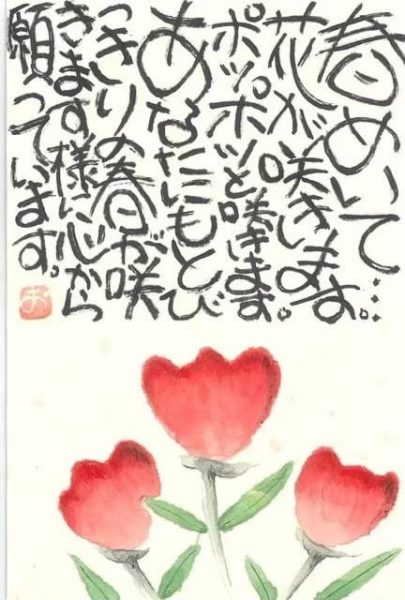 春めいて…
花が咲きします。
ポッポッと咲きます。
あなたにもとび
っきりの春が咲
きます様に心から
願っています。